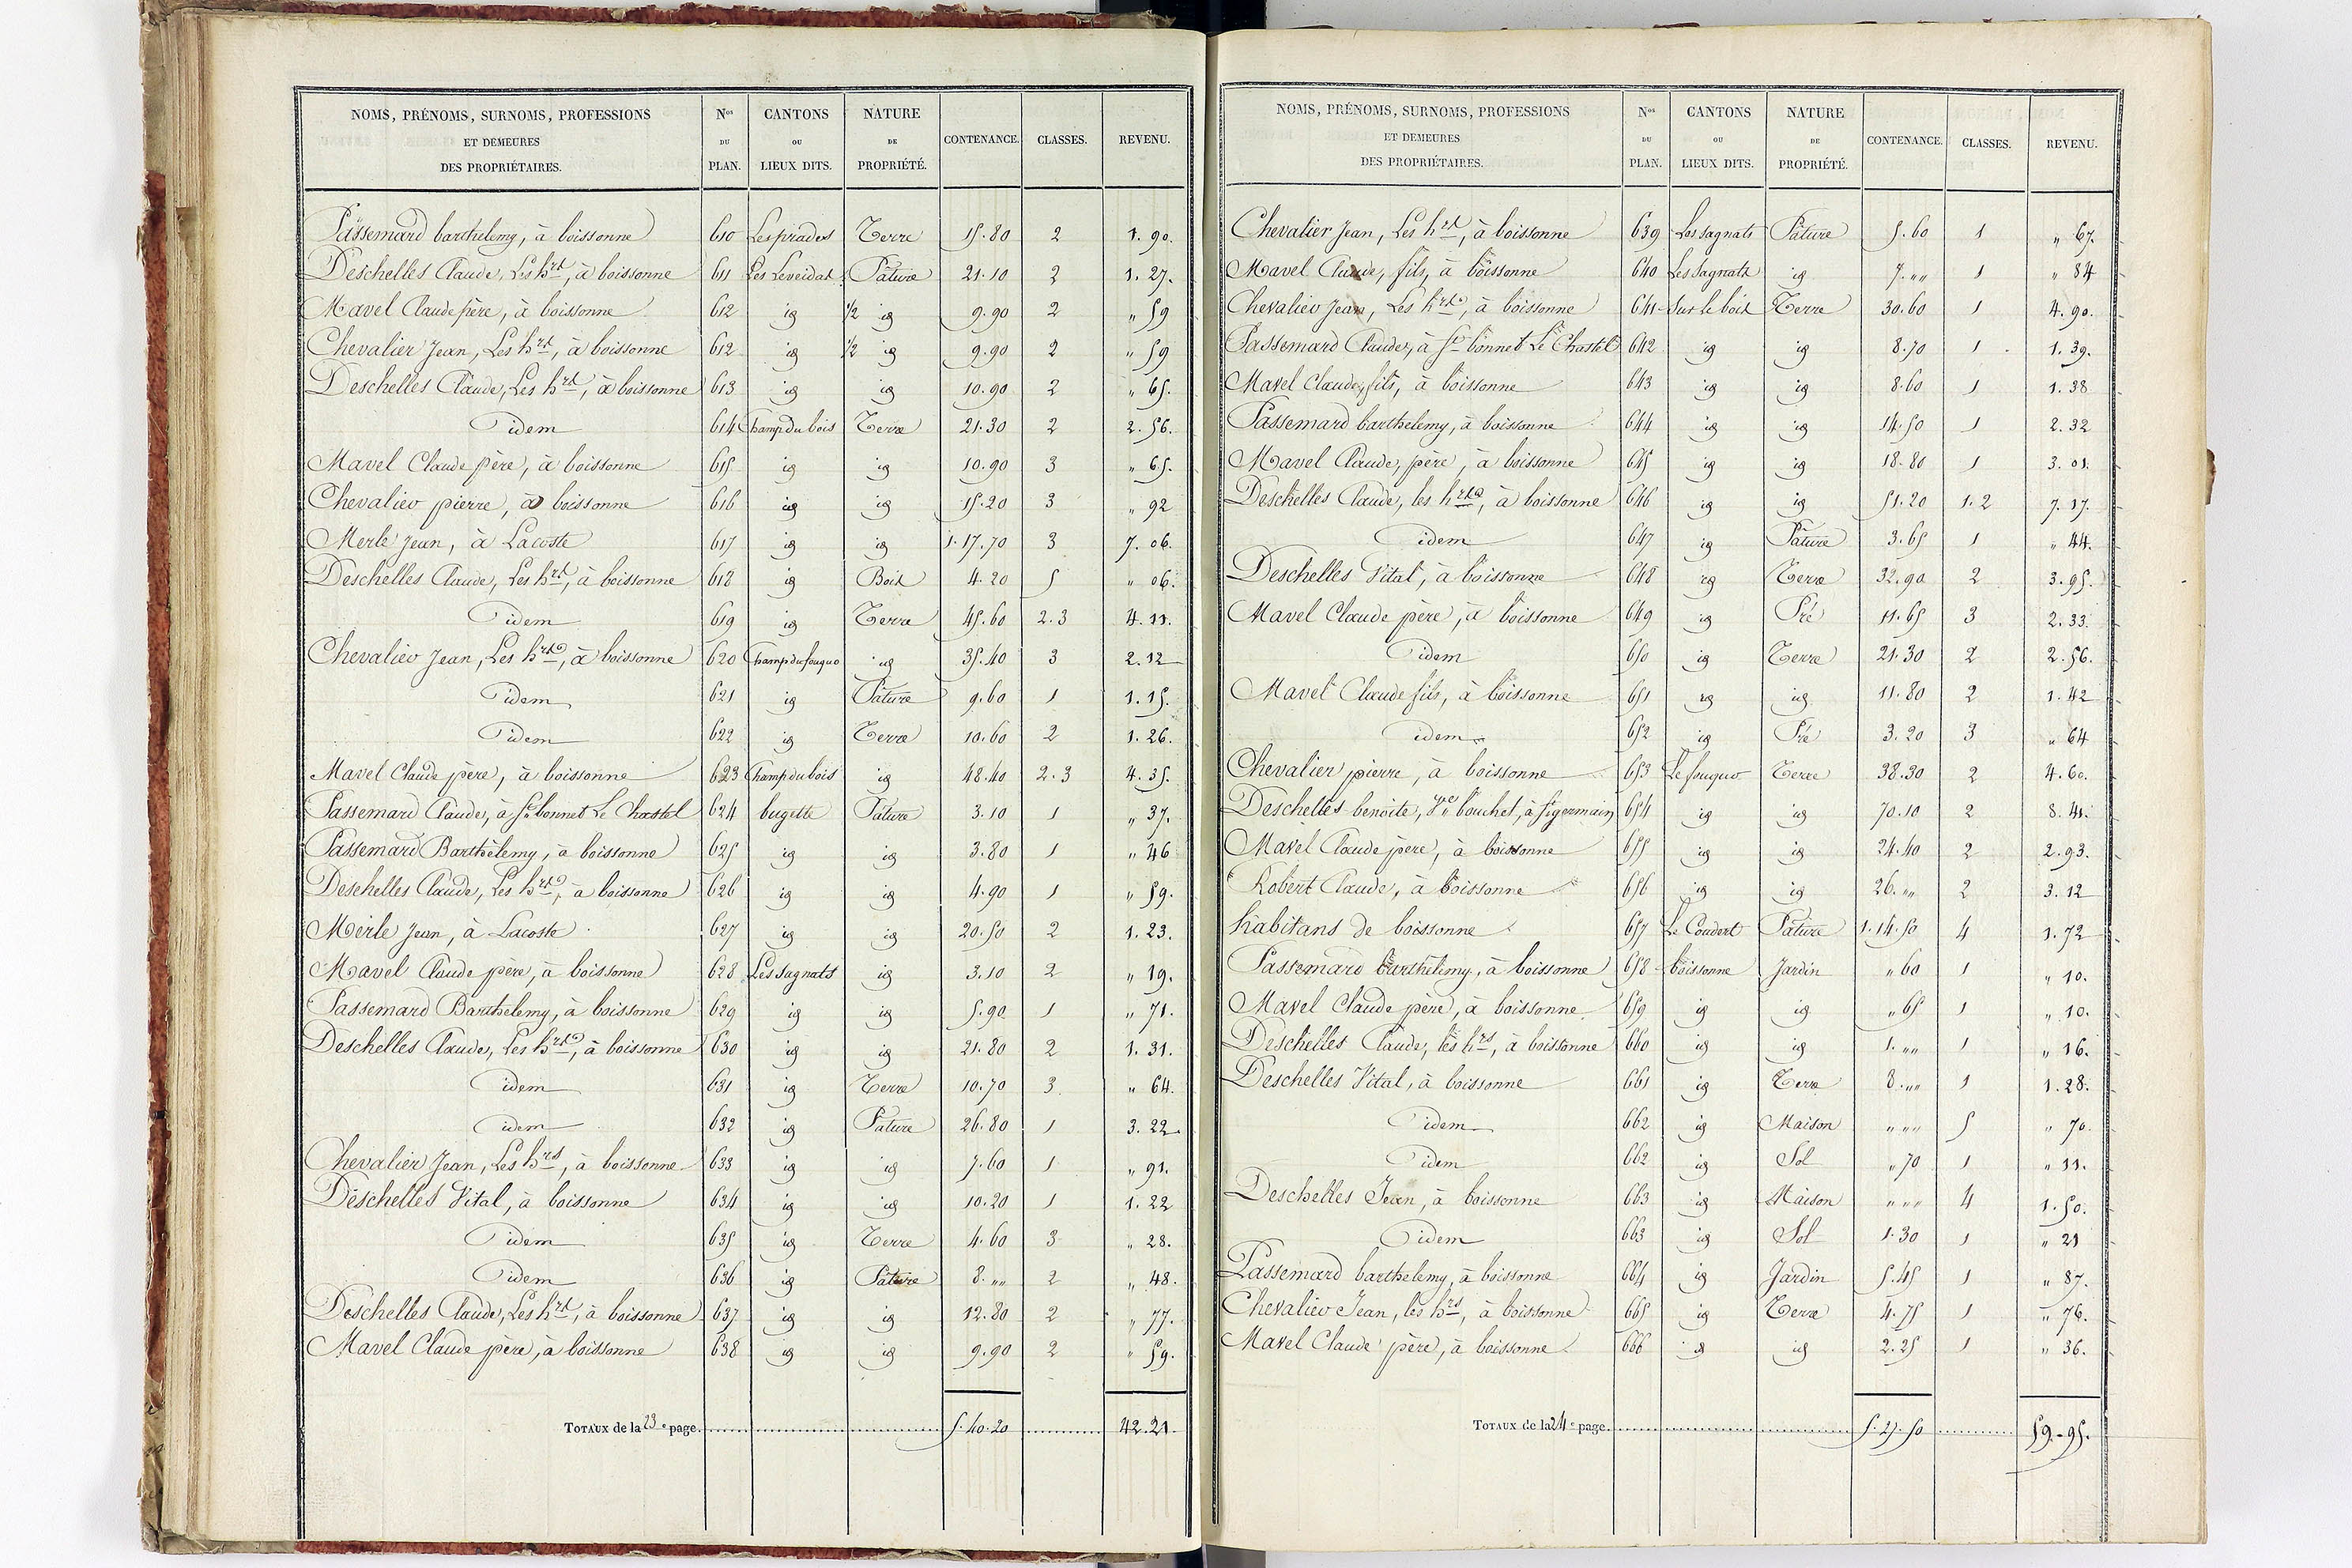 NOMS, PRÉNOMS, SURNOMS, PROFESSIONS ET DEMEURES DES PROPRIÉTAIRES. Nos DU PLAN. CANTONS OU LIEUX DITS. NATURE DE PROPRIÉTÉ. CONTENANCE. CLASSES. REVENU.
Passemard barthelemy, à boissonne 610 Les prades Terre 15.80 2 1.90.
Deschelles Claude, Les hrs, à boissonne 611 Les Leveidas Pâture 21.10 2 1.27.
Mavel Claude père, à boissonne 612 id 1/2 id 9.90 2 " 59
Chevalier Jean, Les hrs, à boissonne 612 id 1/2 id 9.90 2 " 59
Deschelles Claude, Les hrs, à boissonne 613 id id 10.90 2 " 65.
idem 614 Champ du bois Terre 21.30 2 2.56.
Mavel Claude père, à boissonne 615 id id 10.90 3 " 65.
Chevalier pierre, à boissonne 616 id id 15.20 3 " 92
Merle Jean, à Lacoste 617 id id 1.17.70 3 7.06.
Deschelles Claude, Les hrs, à boissonne 618 id Bois 4.20 5 " 06.
idem 619 id Terre 45.60 2.3 4.11.
Chevalier Jean, Les hrs, à boissonne 620 Champ du fouguo id 35.40 3 2.12
idem 621 id Pâture 9.60 1 1.15.
idem 622 id Terre 10.60 2 1.26.
Mavel Claude père, à boissonne 623 Champ du bois id 48.40 2.3 4.35.
Passemard Claude, à St bonnet Le Chastel 624 bugette Pâture 3.10 1 " 37.
Passemard Barthèlemy, à boissonne 625 id id 3.80 1 " 46
Deschelles Claude, Les hrs, à boissonne 626 id id 4.90 1 " 59.
Merle Jean, à Lacoste 627 id id 20.50 2 1.23.
Mavel Claude père, à boissonne 628 Les Sagnats id 3.10 2 " 19.
Passemard Barthelemy, à boissonne 629 id id 5.90 1 " 71.
Deschelles Claude, Les hrs, à boissonne 630 id id 21.80 2 1.31.
idem 631 id Terre 10.70 3 " 64.
idem 632 id Pature 26.80 1 3.22
Chevalier Jean, Les hrs, à boissonne 633 id id 7.60 1 " 91.
Deschelles Vital, à boissonne 634 id id 10.20 1 1.22
idem 635 id Terre 4.60 3 " 28.
idem 636 id Pature 8. "" 2 " 48.
Deschelles Claude, Les hrs, à boissonne 637 id id 12.80 2 " 77.
Mavel Claude père, à boissonne 638 id id 9.90 2 " 59.
TOTAUX de la 23e page. 5.40.20 42.21
NOMS, PRÉNOMS, SURNOMS, PROFESSIONS ET DEMEURES DES PROPRIÉTAIRES. Nos DU PLAN. CANTONS OU LIEUX DITS. NATURE DE PROPRIÉTÉ. CONTENANCE. CLASSES. REVENU.
Chevalier Jean, Les hrs, à boissonne 639 Les Sagnats Pâture 5.60 1 " 67.
Mavel Claude, fils, à boissonne 640 Les Sagnats id 7. "" 1 " 84
Chevalier Jean, Les hrs, à boissonne 641 Sur le bois Terre 30.60 1 4.90.
Passemard Claude, à St bonnet Le Chastel 642 id id 8.70 1 1.39.
Mavel Claude, fils, à boissonne 643 id id 8.60 1 1.38
Passemard barthelemy, à boissonne 644 id id 14.50 1 2.32
Mavel Claude, père, à boissonne 645 id id 18.80 1 3.01.
Deschelles Claude, les hrs, à boissonne 646 id id 51.20 1.2 7.17.
idem 647 id Pature 3.65 1 " 44.
Deschelles Vital, à boissonne 648 id Terre 32.90 2 3.95.
Mavel Claude père, à boissonne 649 id Pré 11.65 3 2.33.
idem 650 id Terre 21.30 2 2.56.
Mavel Claude fils, à boissonne 651 id id 11.80 2 1.42
idem 652 id Pré 3.20 3 " 64
Chevalier pierre, à boissonne 653 Le fouguo Terre 38.30 2 4.60.
Deschelles benoite, Ve bouchet, à St germain 654 id id 70.10 2 8.41.
Mavel Claude père, à boissonne 655 id id 24.40 2 2.93.
Robert Claude, à boissonne 656 id id 26. "" 2 3.12
habitans de boissonne 657 Le Coudert Pature 1.14.50 4 1.72
Passemard barthèlemy, à boissonne 658 boissonne Jardin " 60 1 " 10.
Mavel Claude père, à boissonne 659 id id " 65 1 " 10.
Deschelles Claude, les hrs, à boissonne 660 id id 1. "" 1 " 16.
Deschelles Vital, à boissonne 661 id Terre 8. "" 1 1.28.
idem 662 id Maison " "" 5 " 70.
idem 662 id Sol " 70 1 " 11.
Deschelles Jean, à boissonne 663 id Maison " "" 4 1.50.
idem 663 id Sol 1.30 1 " 21
Passemard barthelemy, à boissonne 664 id Jardin 5.45 1 " 87.
Chevalier Jean, les hrs, à boissonne 665 id Terre 4.75 1 " 76.
Mavel Claude père, à boissonne 666 id id 2.25 1 " 36.
TOTAUX de la 24e page. 5.27.50 59.95.